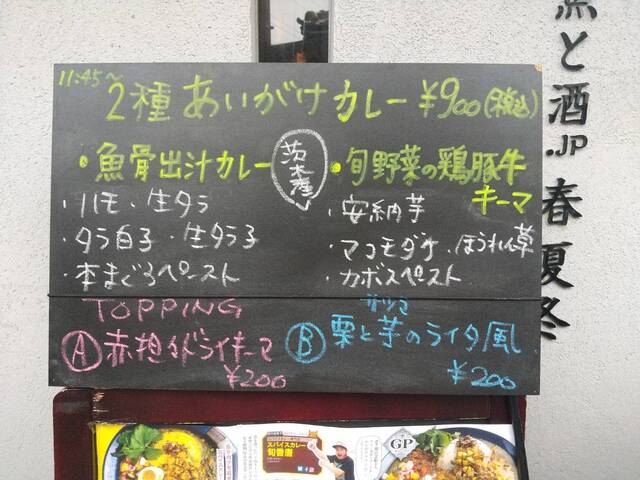 11:45~
2種あいがけカレー ¥900(税込)
・魚骨出汁カレー
・ハモ・生タラ
・タラ白子・生タラ子
・本まぐろペースト
茨木産
・旬野菜の鶏豚牛
キーマ
・安納芋
・マコモダケ・ほうれん草
・カボスペースト
TOPPING
Ⓐ ドライキーマ
¥200
サツマ
Ⓑ 栗と芋のライタ風
¥200
魚と酒.JP 春夏冬
スパイスカレー
旬香唐
GP